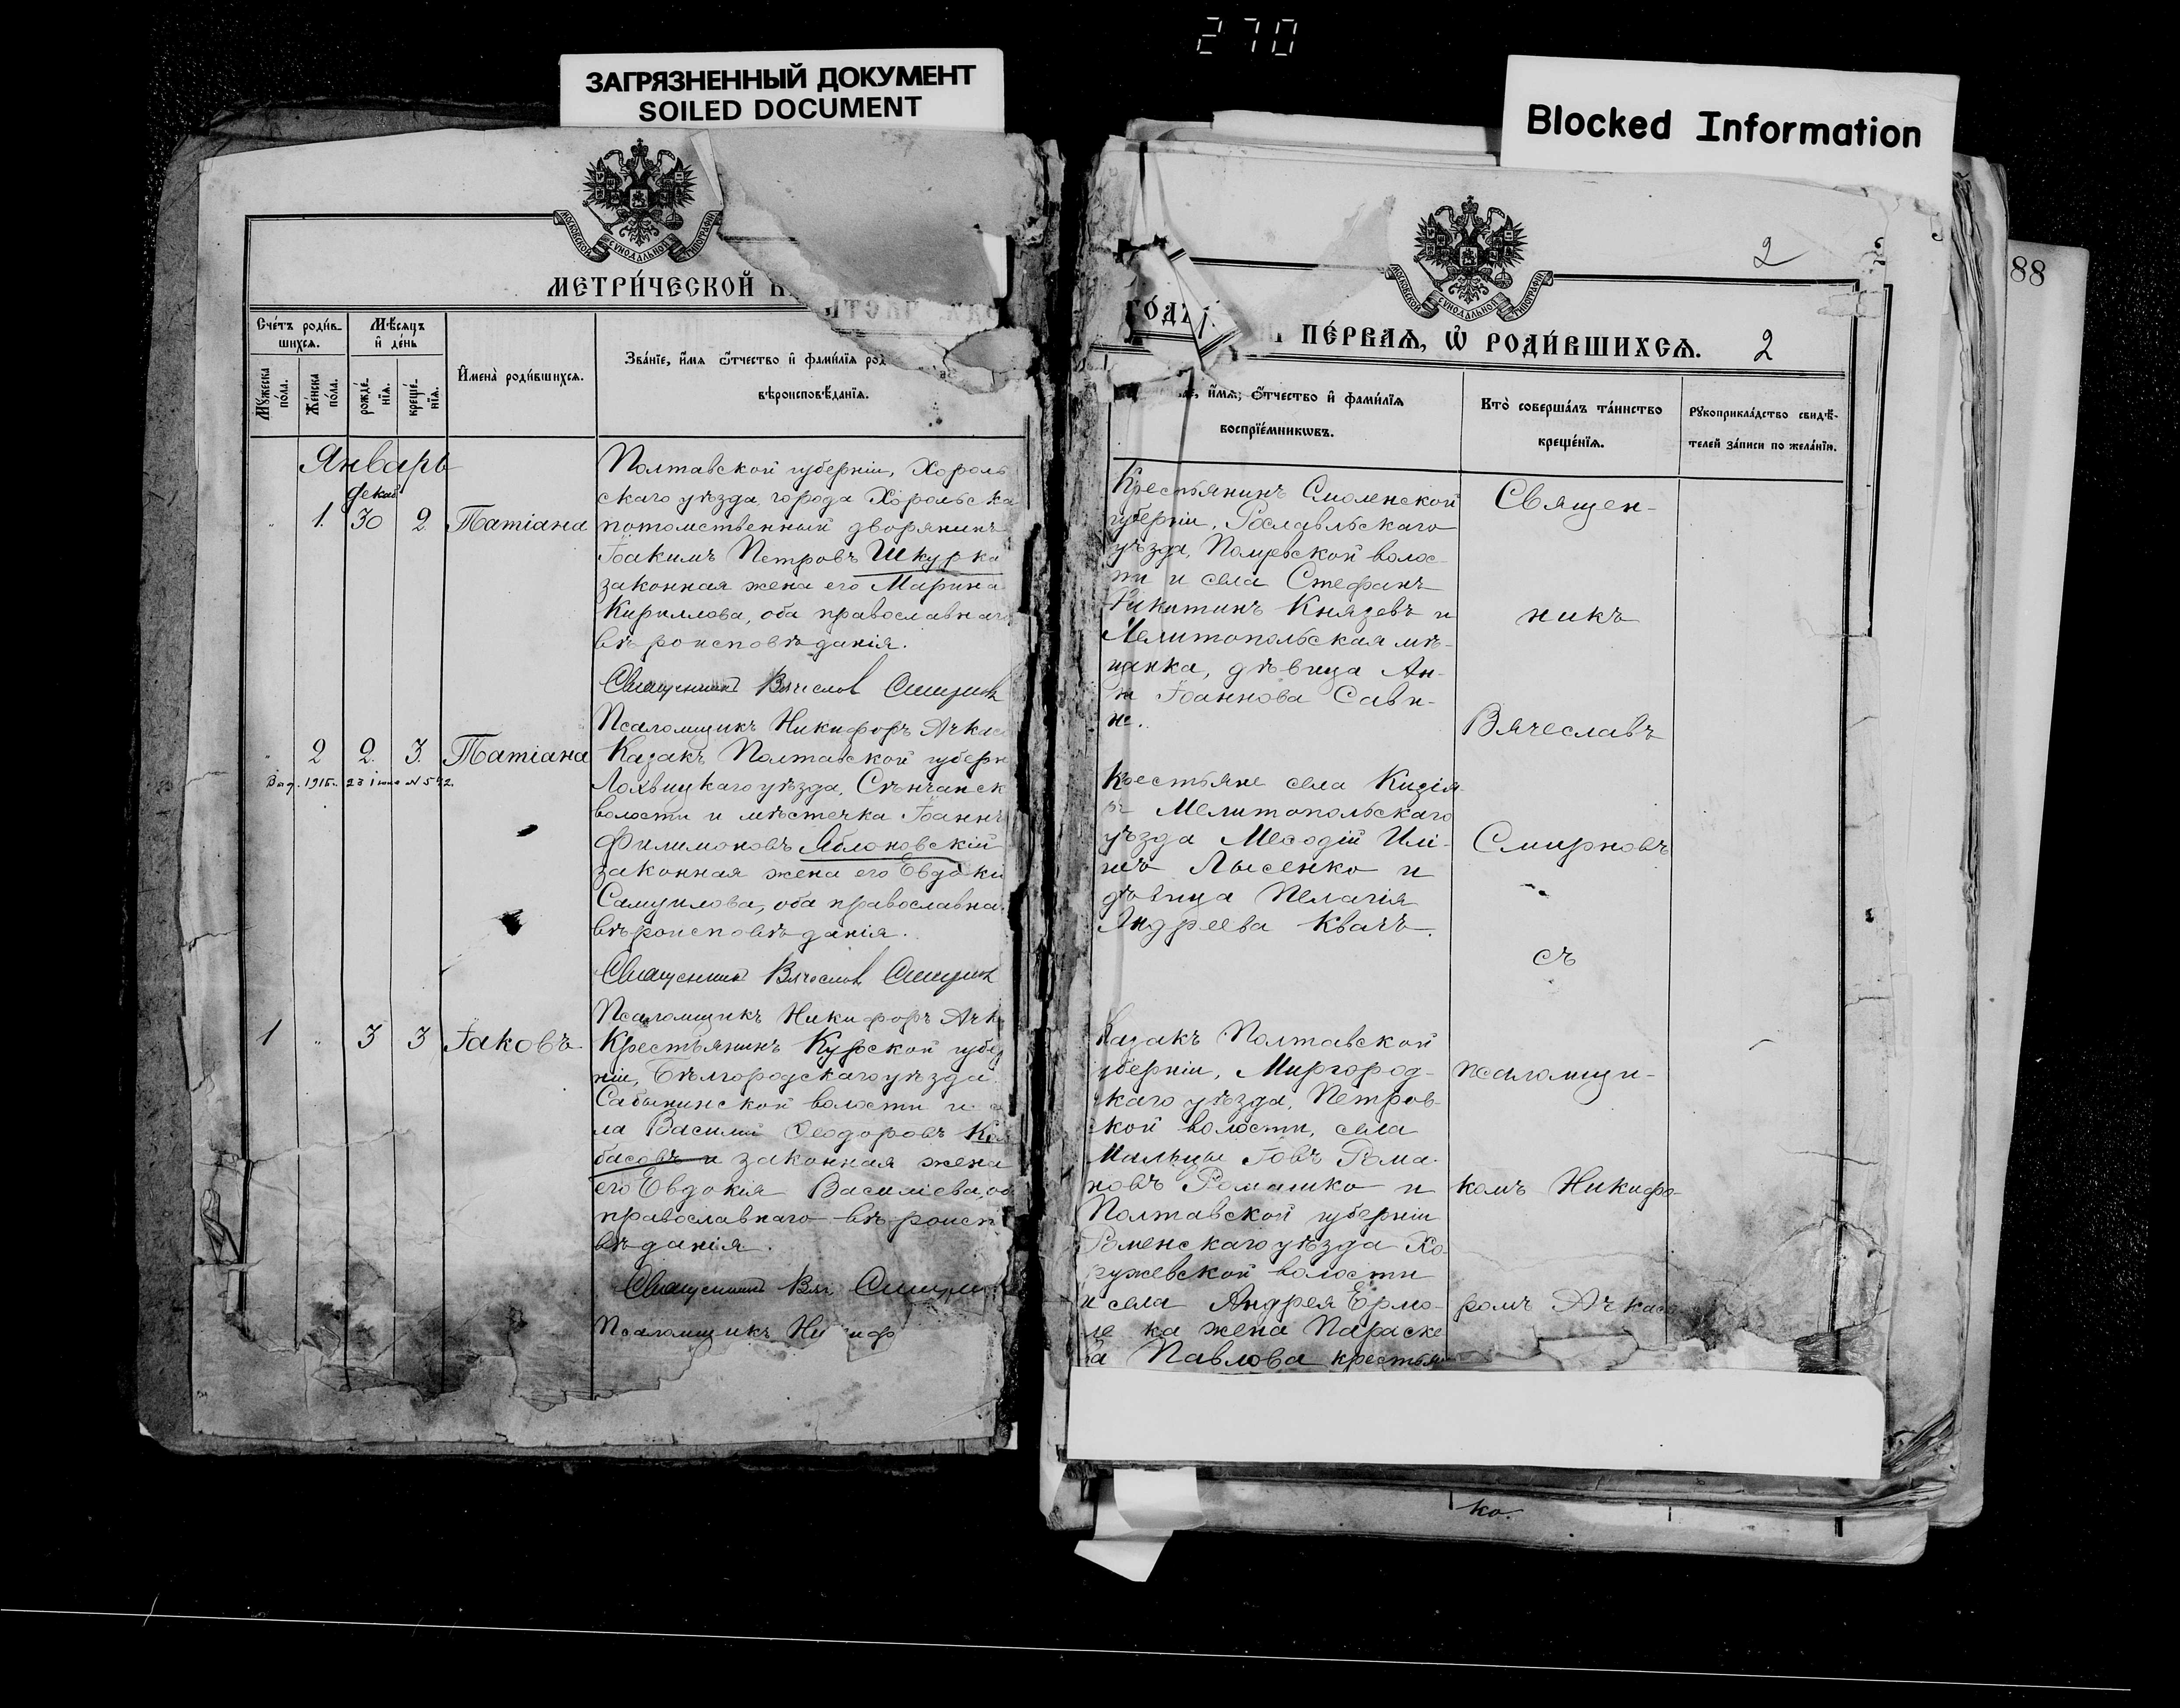 270
ЗАГРЯЗНЕННЫЙ ДОКУМЕНТ
SOILED DOCUMENT
Blocked Information
88
МОСКОВСКОЙ СѴНОДАЛЬНОЙ ТИПОГРАФІИ
МЕТРИ́ЧЕСКОЙ
Сче́тъ роди́в-
шихсѧ.
Мѣ́сяцъ
и҆ де́нь
Мꙋ́жеска по́ла.
Же́нска по́ла.
рожде́-
нїѧ.
креще́-
нїѧ.
И҆мена̀ роди́вшихсѧ.
Зва́нїе, и҆́мѧ ѻ҆́тчество и҆ фами́лїѧ род
вѣроисповѣ́данїѧ.
Январь
Декаб
" 1. 30 2. Татіана
Полтавской губерніи, Хороль
скаго уѣзда, города Хорольска
потомственный дворянинъ
Іоакимъ Петровъ Шкурка
законная жена его Марина
Кириллова, оба православнаго
вѣроисповѣданія.
Священникъ Вячеслав Смирнов
Псаломщикъ Никифоръ Ачкас
" 2 2. 3. Татіана
Выд. 1915 г. 23 іюня № 542.
Казакъ Полтавской губерн
Лохвицкаго уѣзда, Сѣнчанск
волости и мѣстечка Іоаннъ
Филимоновъ Яблоновскій
законная жена его Евдокі
Самуилова, оба православна
вѣроисповѣданія.
Священникъ Вячеслав Смирнов
Псаломщикъ Никифоръ Ачк
1 " 3 3 Іаковъ
Крестьянинъ Курской губер
ніи, Бѣлгородскаго уѣзда
Сабынинской волости и с
ла Василій Ѳеодоровъ Кол
басовъ и законная жена
его Евдокія Василіева, об
православнаго вѣроисп
вѣданія.
Священникъ Вяч Смирн
Псаломщикъ Ни иф
2
МОСКОВСКОЙ СѴНОДАЛЬНОЙ ТИПОГРАФІИ
ГО́ДЪ
ПЕ́РВАѦ, Ѡ҆ РОДИ́ВШИХСѦ. 2
и҆́мѧ, ѻ҆́тчество и҆ фами́лїѧ
воспрїе́мникѡвъ.
Кто̀ соверша́лъ та́инство
креще́нїѧ.
Рꙋкоприкла́дство свидѣ́-
телей за́писи по жела́нїю.
Крестьянинъ Смоленской
губерніи, Рославльскаго
уѣзда, волос-
ти и села Стефанъ
Никитинъ Князевъ и
Мелитопольская мѣ-
щанка, дѣвица Ан-
на Іоаннова Сави-
на.
Крестьяне села Кизія
Мелитопольскаго
уѣзда Меѳодій Илі-
инъ Лысенко и
дѣвица Пелагія
Андреева Квачъ.
Казакъ Полтавской
губерніи, Миргород-
скаго уѣзда, Петров-
кой волости, села
Мильцы Іовъ Рома-
новъ Ромашко и
Полтавской губерніи
Роменскаго уѣзда Хо-
ружевской волости
и села Андрея Ермо-
ле ка жена Параске
ва Павлова крестьян
Священ-
никъ
Вячеславъ
Смирновъ
съ
псаломщи-
комъ Никифо-
ромъ Ачкасо
ко.